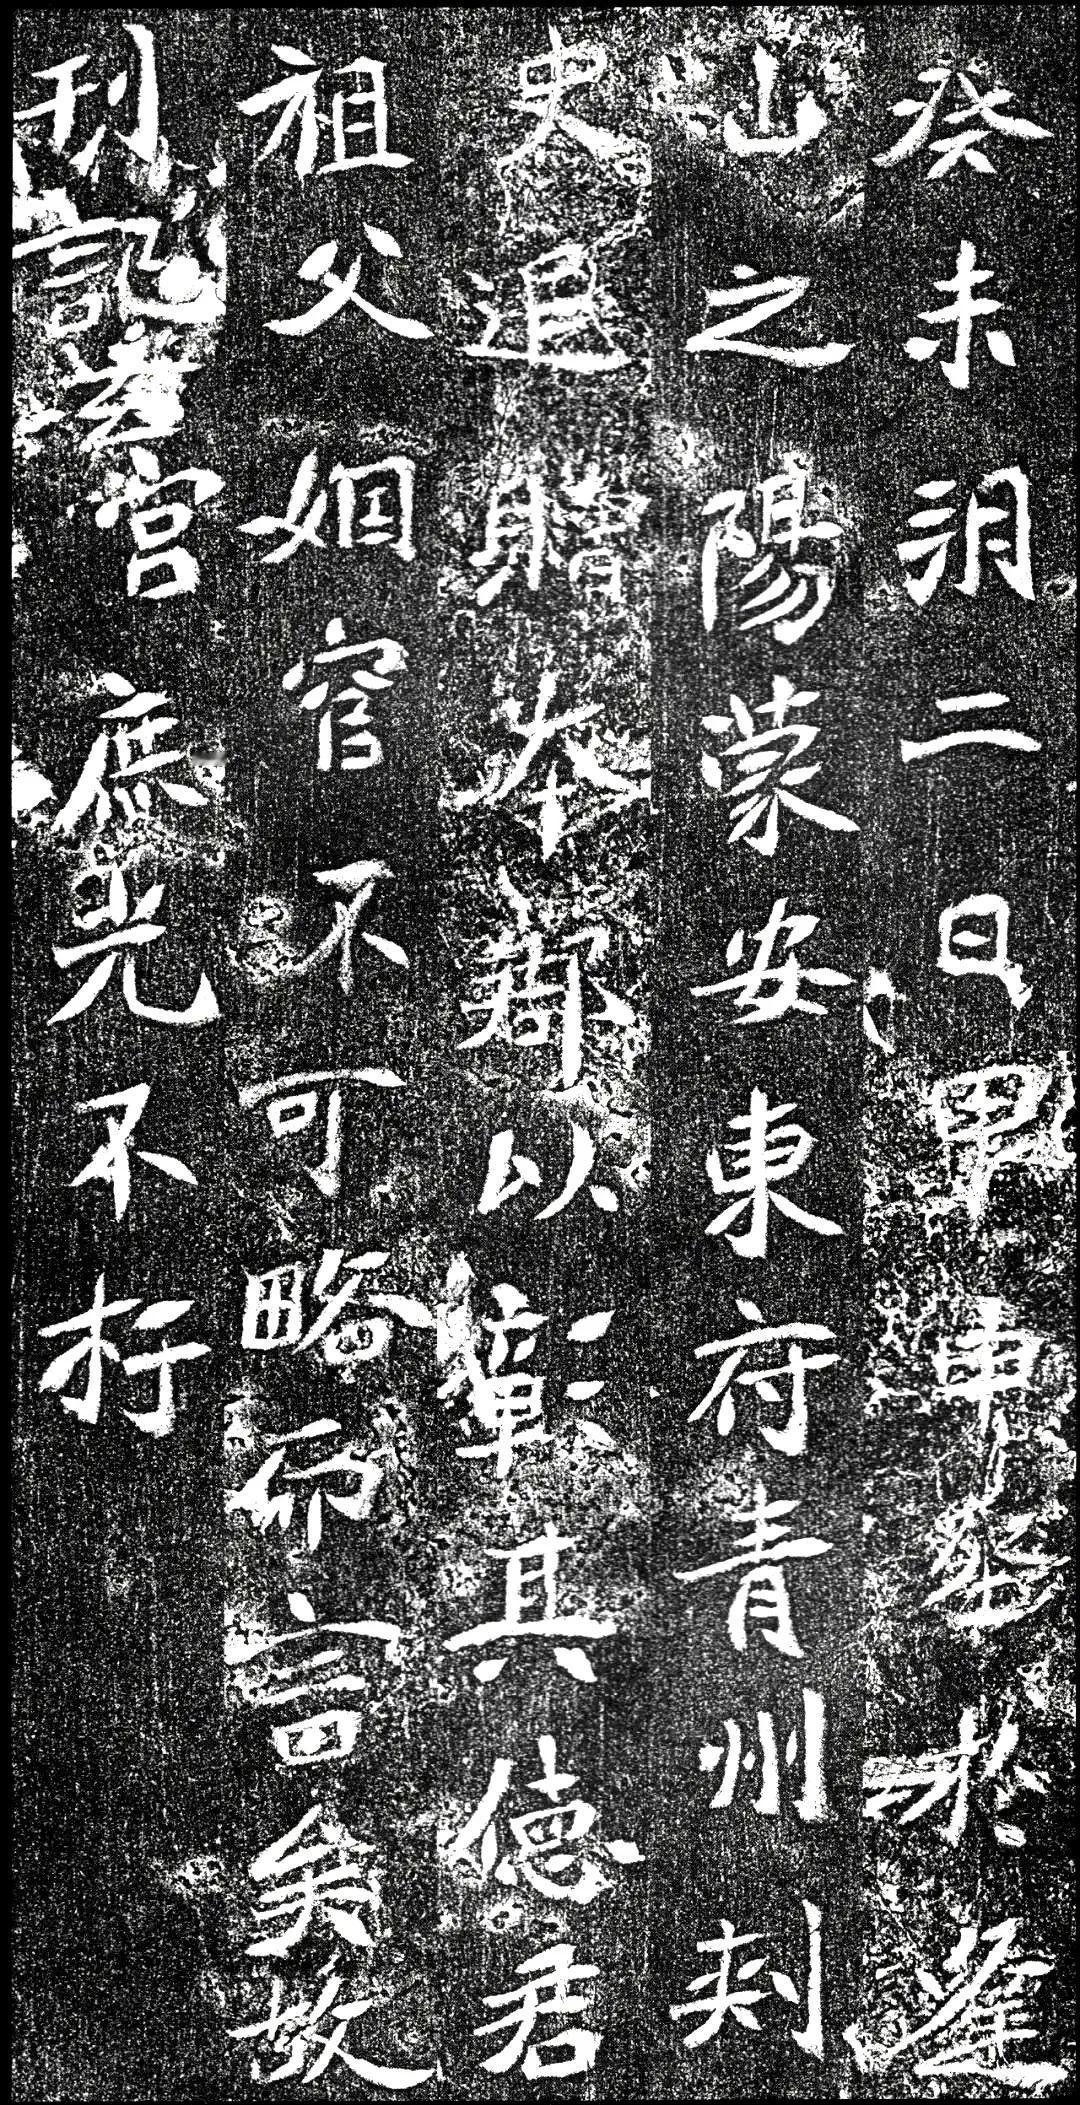 癸未朔二日甲申葬於
山之陽蒙安東府青州刺
史追贈本以彰其德君
祖父姻官不可略而言矣故
刊記宮庶光不朽